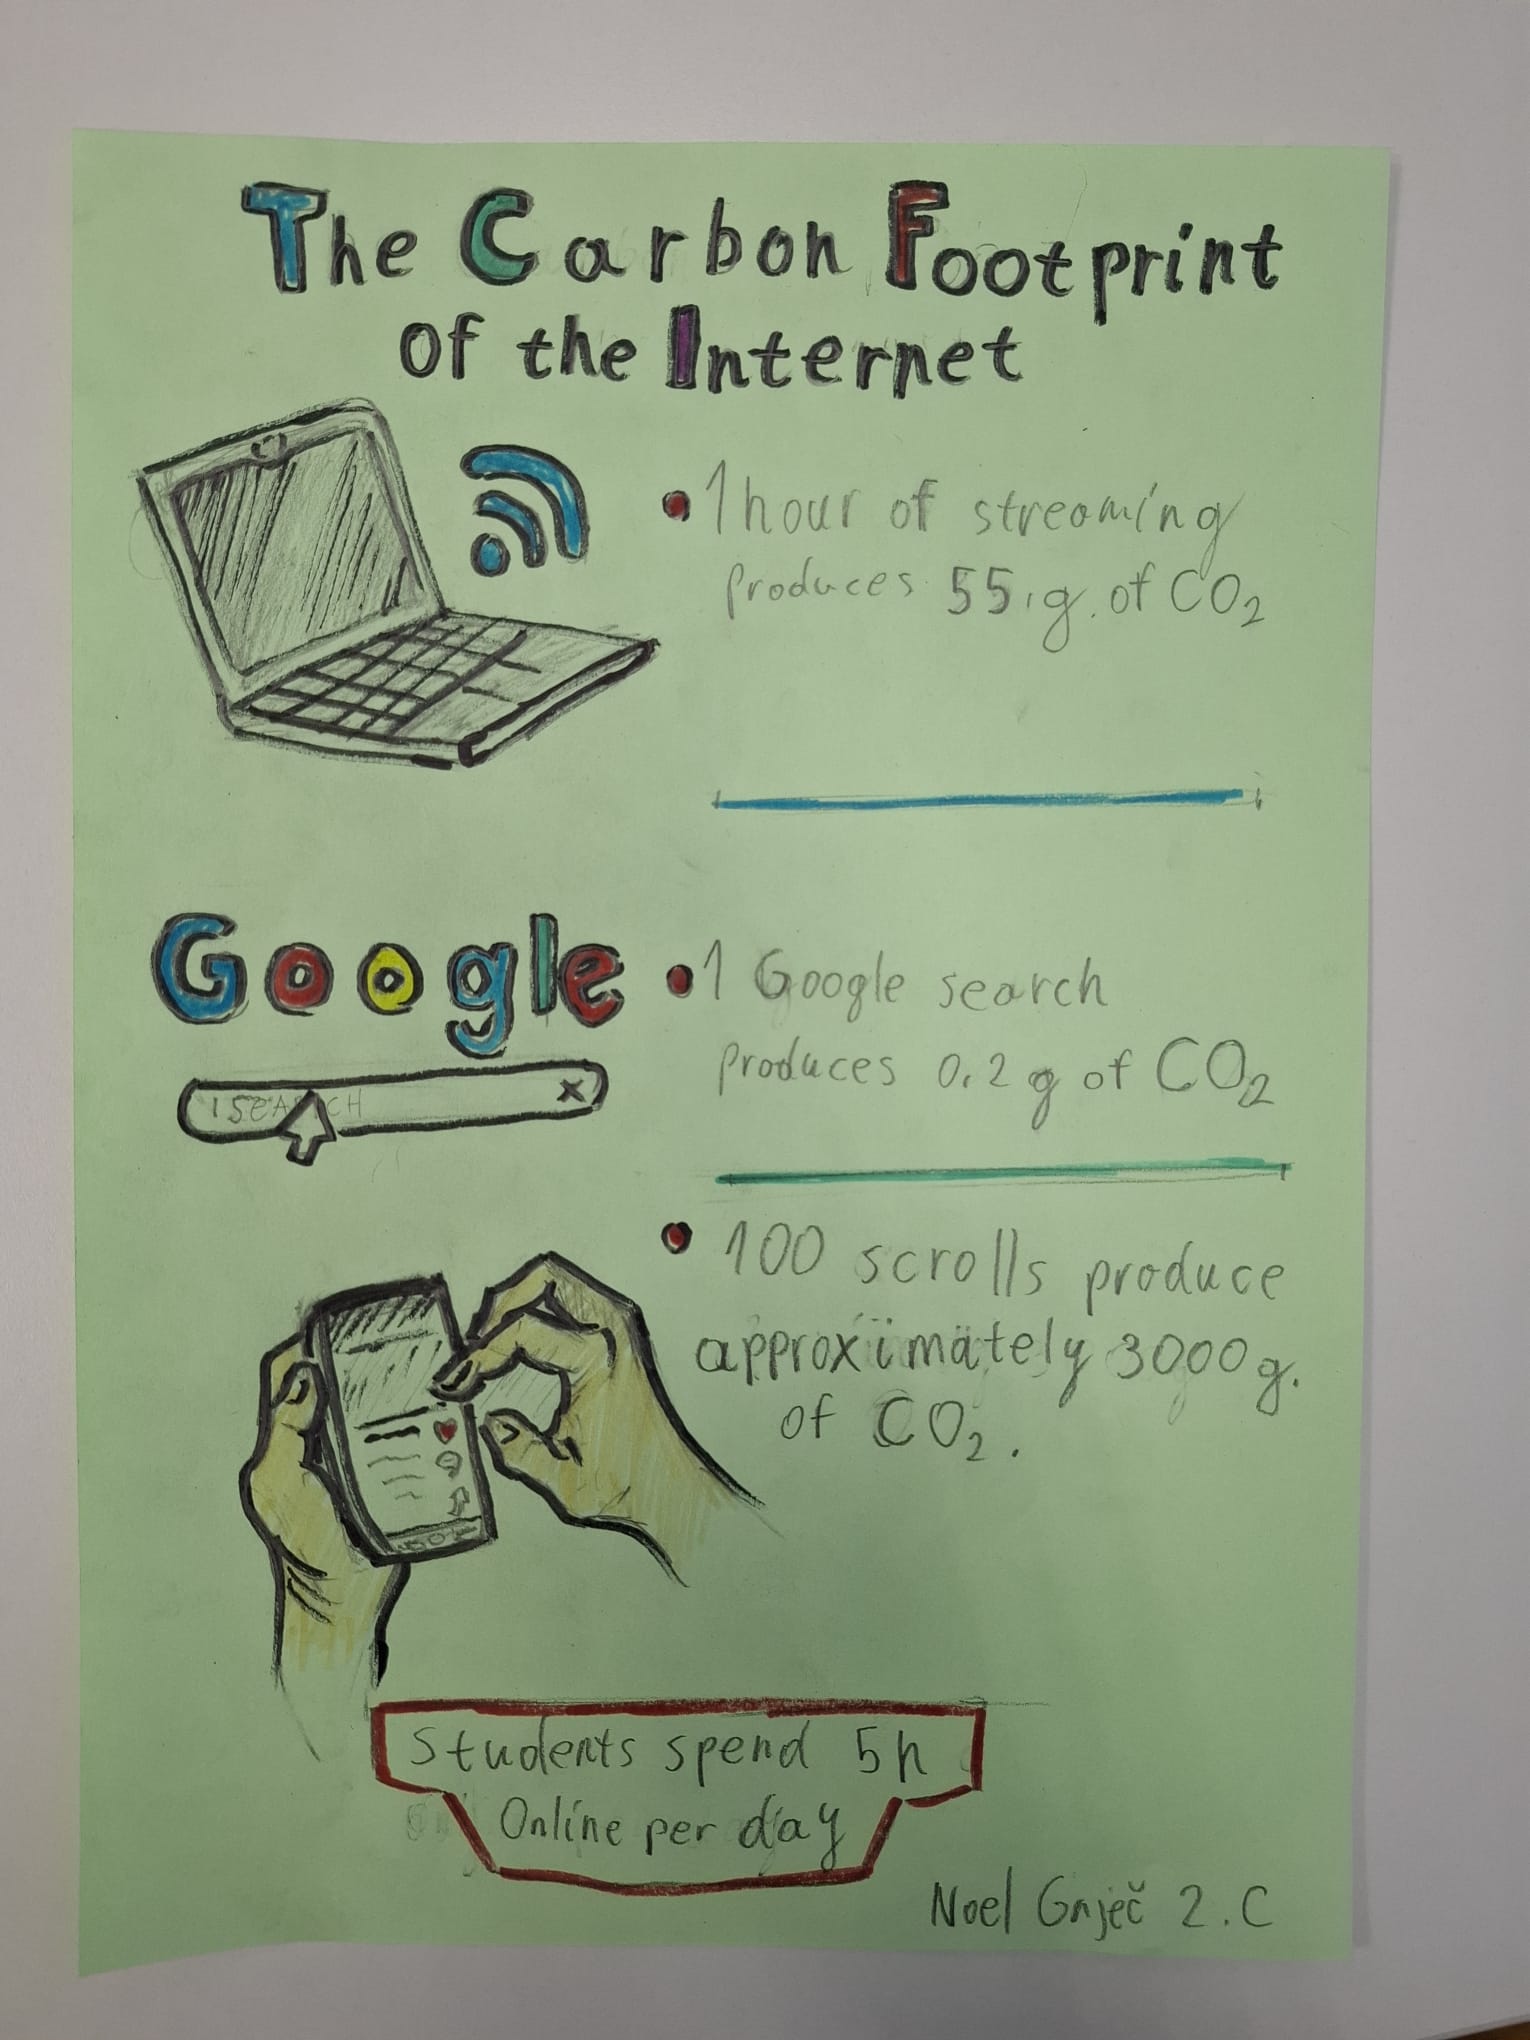 The Carbon Footprint
of the Internet
1 hour of streaming
produces 55 g. of CO2
Google
SEARCH
x
1 Google search
produces 0.2 g of CO2
100 scrolls produce
approximately 3000 g.
of CO2.
Students spend 5h
Online per day
Noel Gnječ 2.C